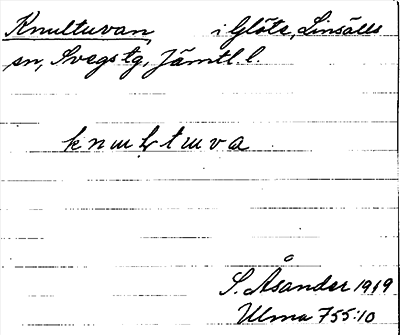 Knultuvan, i Glöte, Linsälls
sn, Svegs tg, Jämtl. l.
S. Åsander 1919
Ulma 755:10